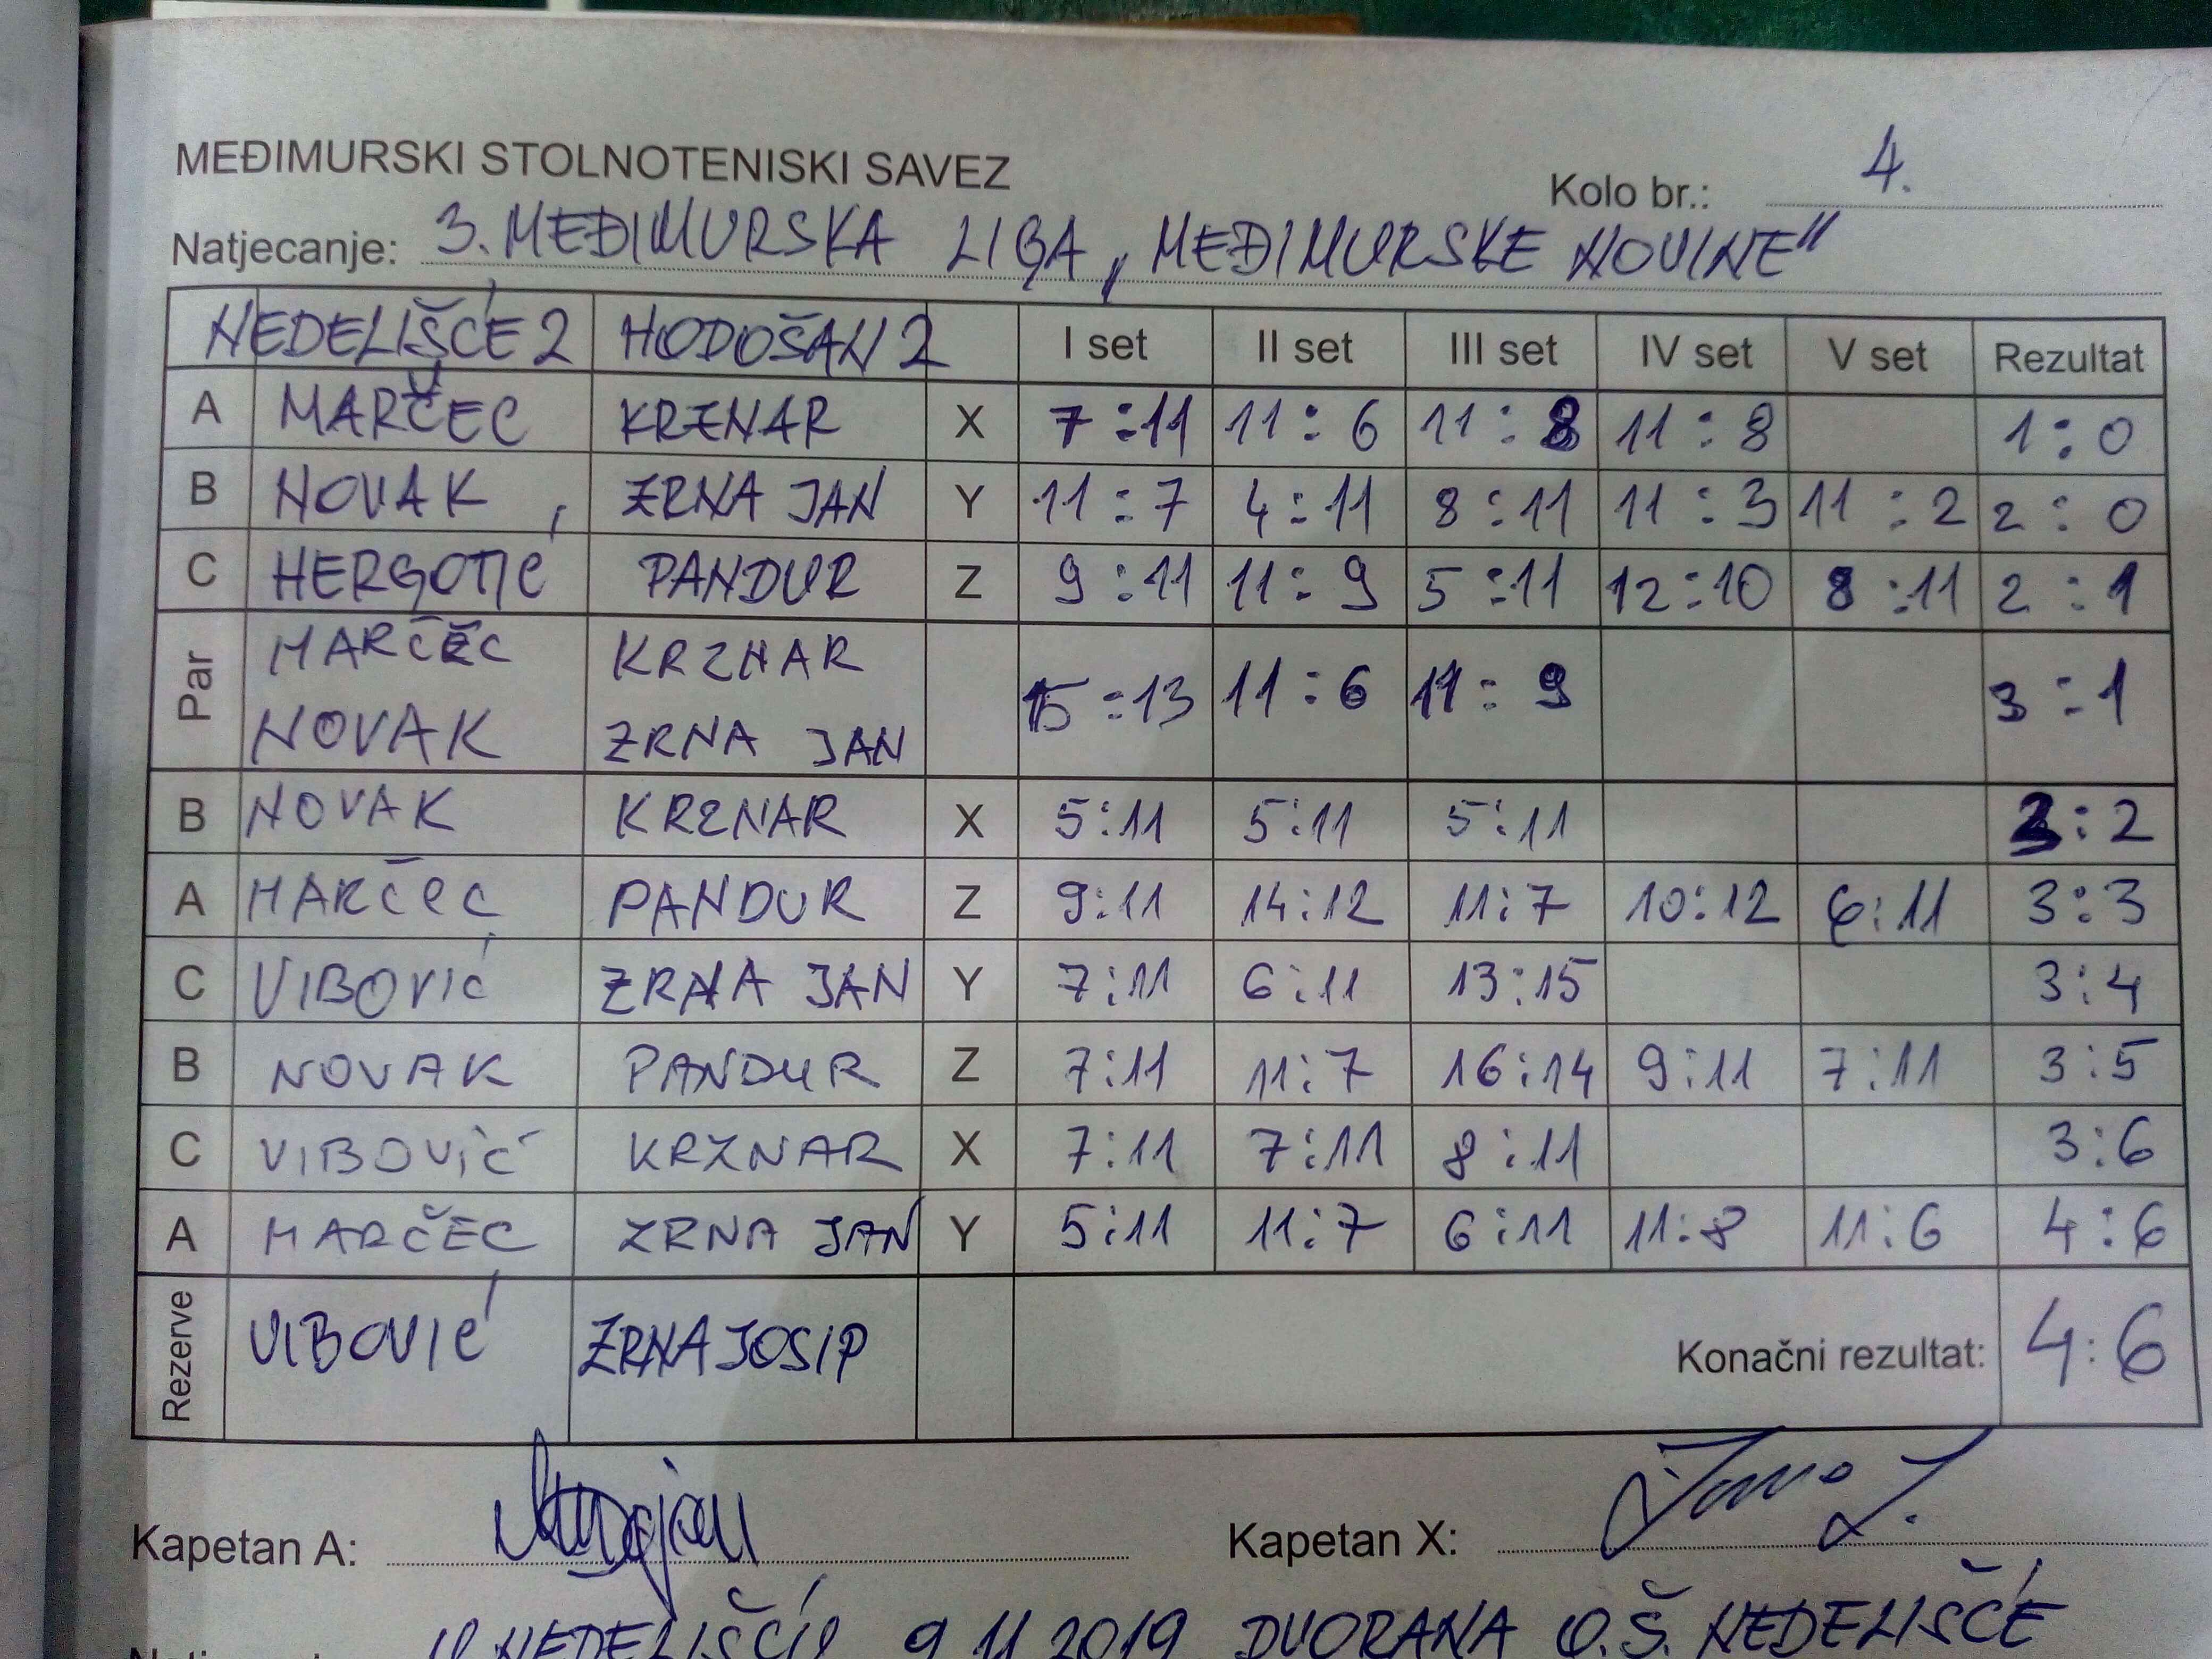 MEĐIMURSKI STOLNOTENISKI SAVEZ
Kolo br.: 4.
Natjecanje: 3. MEĐIMURSKA LIGA „MEĐIMURSKE NOVINE"
NEDELIŠĆE 2 HODOŠAN 2 I set II set III set IV set V set Rezultat
A MARČEC KRZNAR X 7:11 11:6 11:8 11:8 1:0
B NOVAK ZRNA JAN Y 11:7 4:11 8:11 11:3 11:2 2:0
C HERGOTIĆ PANDUR Z 9:11 11:9 5:11 12:10 8:11 2:1
Par MARČEC KRZNAR
NOVAK ZRNA JAN 15:13 11:6 11:9 3:1
B NOVAK KRZNAR X 5:11 5:11 5:11 3:2
A MARČEC PANDUR Z 9:11 14:12 11:7 10:12 6:11 3:3
C VIBOVIĆ ZRNA JAN Y 7:11 6:11 13:15 3:4
B NOVAK PANDUR Z 7:11 11:7 16:14 9:11 7:11 3:5
C VIBOVIĆ KRZNAR X 7:11 7:11 8:11 3:6
A MARČEC ZRNA JAN Y 5:11 11:7 6:11 11:8 11:6 4:6
Rezerve VIBOVIĆ ZRNA JOSIP Konačni rezultat: 4:6
Kapetan A: Kapetan X:
U NEDELIŠĆU 9 11 2019 DVORANA O.Š. NEDELIŠĆE